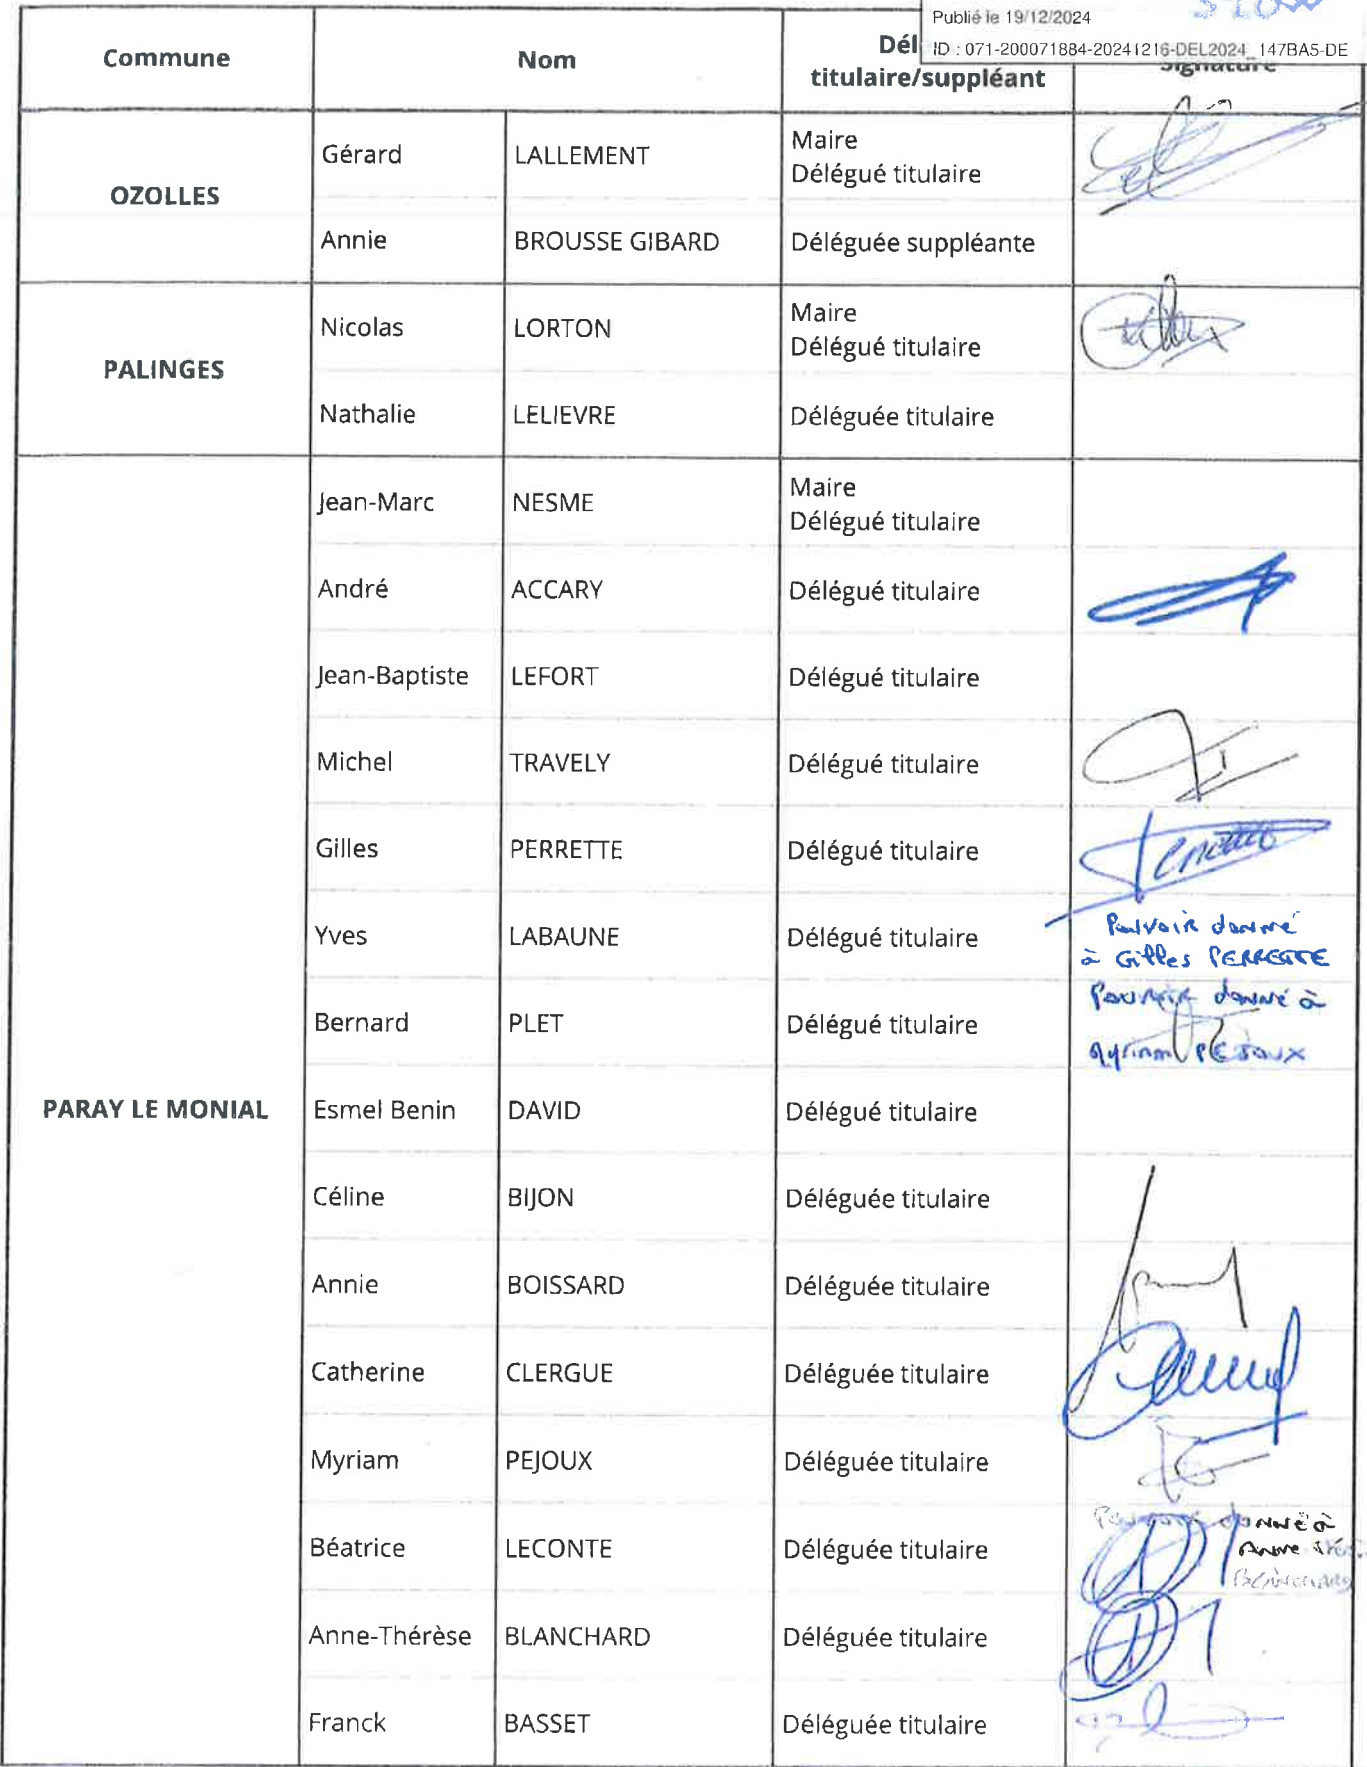 Publié le 19/12/2024
ID : 071-200071884-20241216-DEL2024_147BA5-DE
Commune
Nom
Dél
titulaire/suppléant
Signature
OZOLLES
Gérard
LALLEMENT
Maire
Délégué titulaire
Annie
BROUSSE GIBARD
Déléguée suppléante
PALINGES
Nicolas
LORTON
Maire
Délégué titulaire
Nathalie
LELIEVRE
Déléguée titulaire
PARAY LE MONIAL
Jean-Marc
NESME
Maire
Délégué titulaire
André
ACCARY
Délégué titulaire
Jean-Baptiste
LEFORT
Délégué titulaire
Michel
TRAVELY
Délégué titulaire
Gilles
PERRETTE
Délégué titulaire
Yves
LABAUNE
Délégué titulaire
Pouvoir donné
à Gilles PERRETTE
Bernard
PLET
Délégué titulaire
Pouvoir donné à
Myriam PEJOUX
Esmel Benin
DAVID
Délégué titulaire
Céline
BIJON
Déléguée titulaire
Annie
BOISSARD
Déléguée titulaire
Catherine
CLERGUE
Déléguée titulaire
Myriam
PEJOUX
Déléguée titulaire
Béatrice
LECONTE
Déléguée titulaire
Pouvoir donné à
Anne
BLANCHARD
Anne-Thérèse
BLANCHARD
Déléguée titulaire
Franck
BASSET
Déléguée titulaire